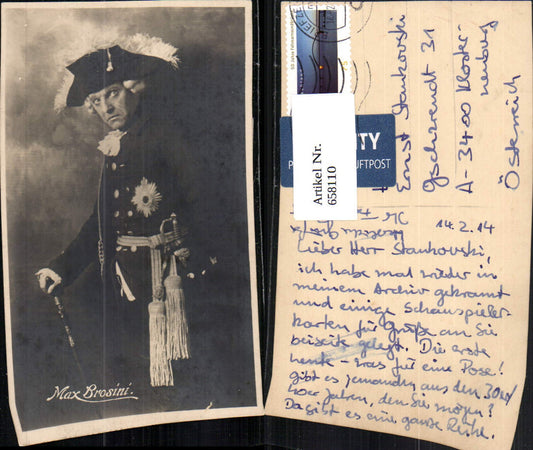 Max Brosini.
Artikel Nr.
658110
Ernst Stankovski
Gschwendt 31
A-3400 Kloster-
neuburg
Österreich
14.2.14
Lieber Herr Stankovski,
ich habe mal wieder in
meinem Archiv gekramt
und einige Schauspieler-
karten für Grüße an Sie
beiseite gelegt. Die erste
heute - was für eine Pose!
gibt es jemanden aus den 30er/
40er Jahren, den Sie mögen?
Da gibt es eine ganze Reihe.